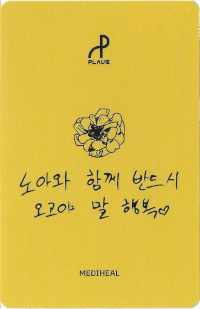 PLAVE
노아와 함께 반드시
오고야 말 행복♡
MEDIHEAL